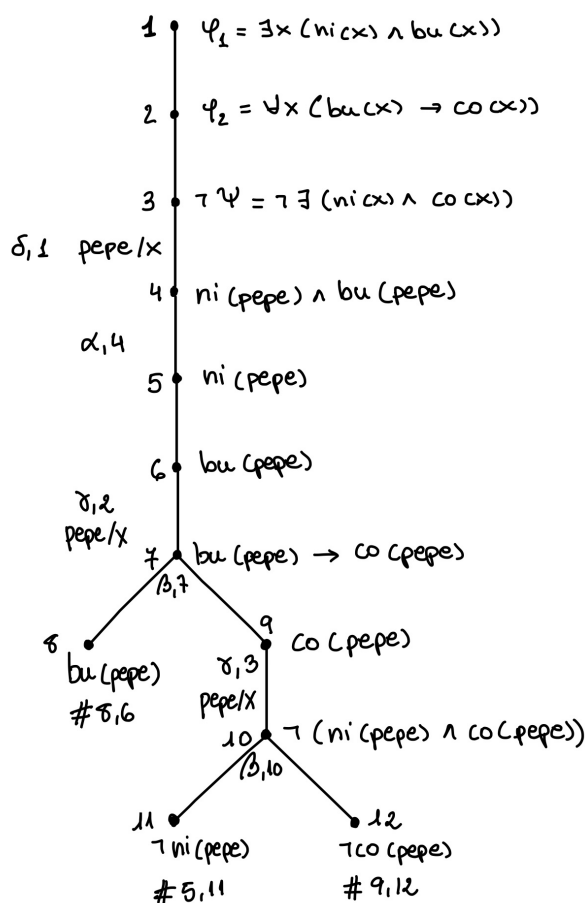 1 φ₁ = ∃x (ni(x) ∧ bu(x))
2 φ₂ = ∀x (bu(x) → co(x))
3 ¬Ψ = ¬∃ (ni(x) ∧ co(x))
δ,1 pepe/x
4 ni(pepe) ∧ bu(pepe)
α,4
5 ni(pepe)
6 bu(pepe)
γ,2
pepe/x
7 bu(pepe) → co(pepe)
β,7
8
bu(pepe)
#8,6
9 co(pepe)
γ,3
pepe/x
10 ¬(ni(pepe) ∧ co(pepe))
β,10
11
¬ni(pepe)
#5,11
12
¬co(pepe)
#9,12